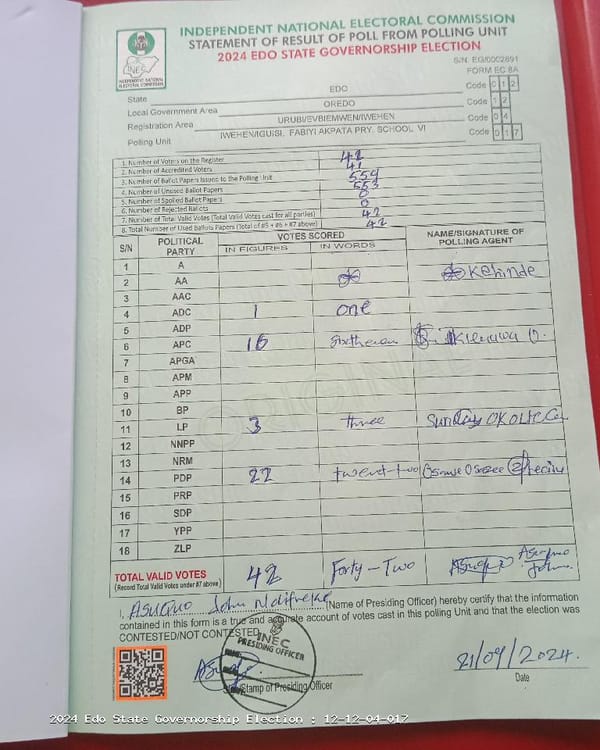 INDEPENDENT NATIONAL ELECTORAL COMMISSION
STATEMENT OF RESULT OF POLL FROM POLLING UNIT
2024 EDO STATE GOVERNORSHIP ELECTION
INEC
INDEPENDENT NATIONAL ELECTORAL COMMISSION
S/N. EG/0002891
FORM EC 8A
State EDO Code 012
Local Government Area OREDO Code 12
Registration Area URUBI/EVBIEMWEN/IWEHEN Code 04
Polling Unit IWEHEN/IGUISI, FABIYI AKPATA PRY. SCHOOL VI Code 017
1. Number of Voters on the Register
2. Number of Accredited Voters 41
3. Number of Ballot Papers Issued to the Polling Unit 559
4. Number of Unused Ballot Papers 553
5. Number of Spoiled Ballot Papers 0
6. Number of Rejected Ballots 0
7. Number of Total Valid Votes (Total Valid Votes cast for all parties) 42
8. Total Number of Used Ballots Papers (Total of #5 + #6 + #7 above) 42
S/N POLITICAL PARTY VOTES SCORED NAME/SIGNATURE OF POLLING AGENT
IN FIGURES IN WORDS
1 A
2 AA Kehinde
3 AAC
4 ADC 1 one
5 ADP
6 APC 16
7 APGA
8 APM
9 APP
10 BP
11 LP 3 three Sunday
12 NNPP
13 NRM
14 PDP 22 twenty-two
15 PRP
16 SDP
17 YPP
18 ZLP
TOTAL VALID VOTES 42 Forty-Two
(Record Total Valid Votes under #7 above)
I, Asuquo John Ndifreke (Name of Presiding Officer) hereby certify that the information
contained in this form is a true and accurate account of votes cast in this polling Unit and that the election was
CONTESTED/NOT CONTESTED.
INEC
PRESIDING OFFICER
21/09/2024.
Stamp of Presiding Officer Date
2024 Edo State Governorship Election : 12-12-04-017